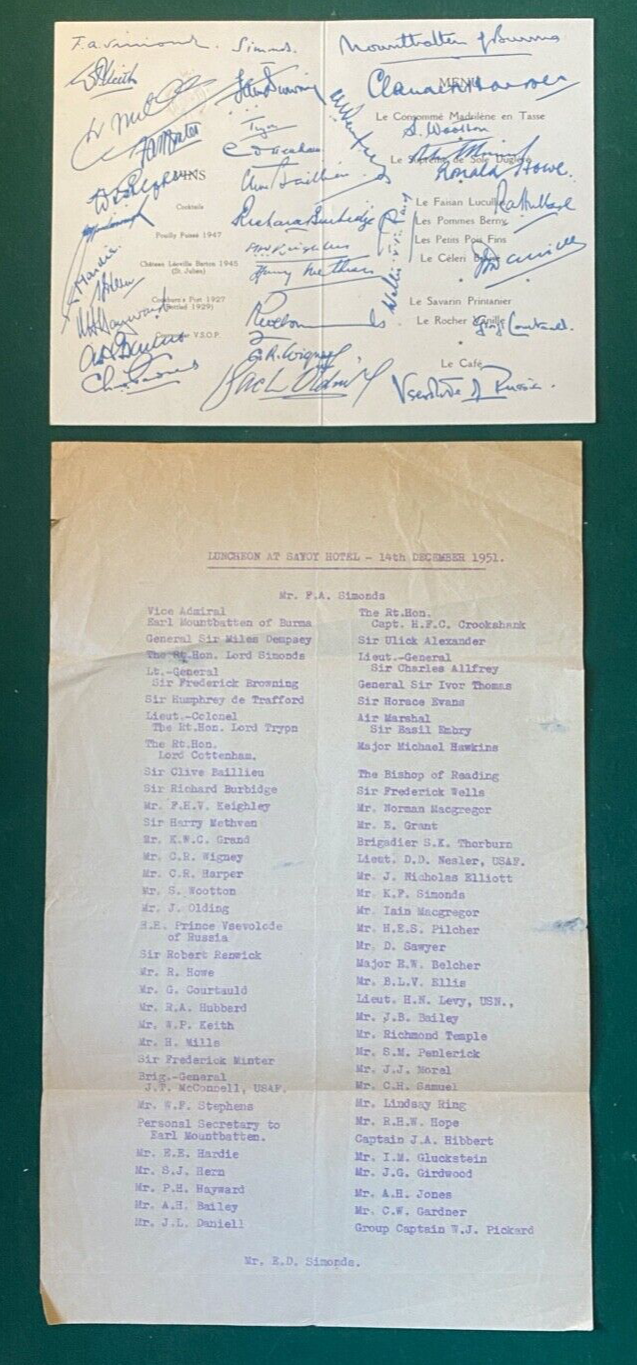 F.A. Simonds. Simonds.
Mountbatten of Burma
MENU
Le Consommé Madrilène en Tasse
S. Wootton
Le Suprême de Sole Dugléré
Ronald Howe.
Le Faisan Lucullus
Les Pommes Berny
Les Petits Pois Fins
Le Céleri
Le Savarin Printanier
Le Rocher Vanille
Le Café
Vsevolode of Russia.
WINS
Cocktails
Pouilly Fuissé 1947
Château Léoville Barton 1945
(St. Julien)
Cockburn's Port 1927
(Bottled 1929)
V.S.O.P.
Richard Burbidge
Harry Methven
C.R. Wigney
Jack Olding
LUNCHEON AT SAVOY HOTEL - 14th DECEMBER 1951.
Mr. F.A. Simonds
Vice Admiral
Earl Mountbatten of Burma
General Sir Miles Dempsey
The Rt.Hon. Lord Simonds
Lt.-General
Sir Frederick Browning
Sir Humphrey de Trafford
Lieut.-Colonel
The Rt.Hon. Lord Tryon
The Rt.Hon.
Lord Cottenham.
Sir Clive Baillieu
Sir Richard Burbidge
Mr. F.H.V. Keighley
Sir Harry Methven
Mr. K.W.C. Grand
Mr. C.R. Wigney
Mr. C.R. Harper
Mr. S. Wootton
Mr. J. Olding
H.E. Prince Vsevolode
of Russia
Sir Robert Renwick
Mr. R. Howe
Mr. G. Courtauld
Mr. R.A. Hubbard
Mr. W.P. Keith
Mr. H. Mills
Sir Frederick Minter
Brig.-General
J.P. McConnell, USAF.
Mr. W.F. Stephens
Personal Secretary to
Earl Mountbatten.
Mr. E.E. Hardie
Mr. S.J. Hern
Mr. P.H. Hayward
Mr. A.H. Bailey
Mr. J.L. Daniell
The Rt.Hon.
Capt. H.F.C. Crookshank
Sir Ulick Alexander
Lieut.-General
Sir Charles Allfrey
General Sir Ivor Thomas
Sir Horace Evans
Air Marshal
Sir Basil Embry
Major Michael Hawkins
The Bishop of Reading
Sir Frederick Wells
Mr. Norman Macgregor
Mr. E. Grant
Brigadier S.K. Thorburn
Lieut. D.D. Nesler, USAF.
Mr. J. Nicholas Elliott
Mr. K.F. Simonds
Mr. Iain Macgregor
Mr. H.E.S. Pilcher
Mr. D. Sawyer
Major E.W. Belcher
Mr. B.L.V. Ellis
Lieut. H.N. Levy, USN.,
Mr. J.B. Bailey
Mr. Richmond Temple
Mr. S.M. Penlerick
Mr. J.J. Morel
Mr. C.H. Samuel
Mr. Lindsay Ring
Mr. R.H.W. Hope
Captain J.A. Hibbert
Mr. I.M. Gluckstein
Mr. J.G. Girdwood
Mr. A.H. Jones
Mr. C.W. Gardner
Group Captain W.J. Pickard
Mr. E.D. Simonds.